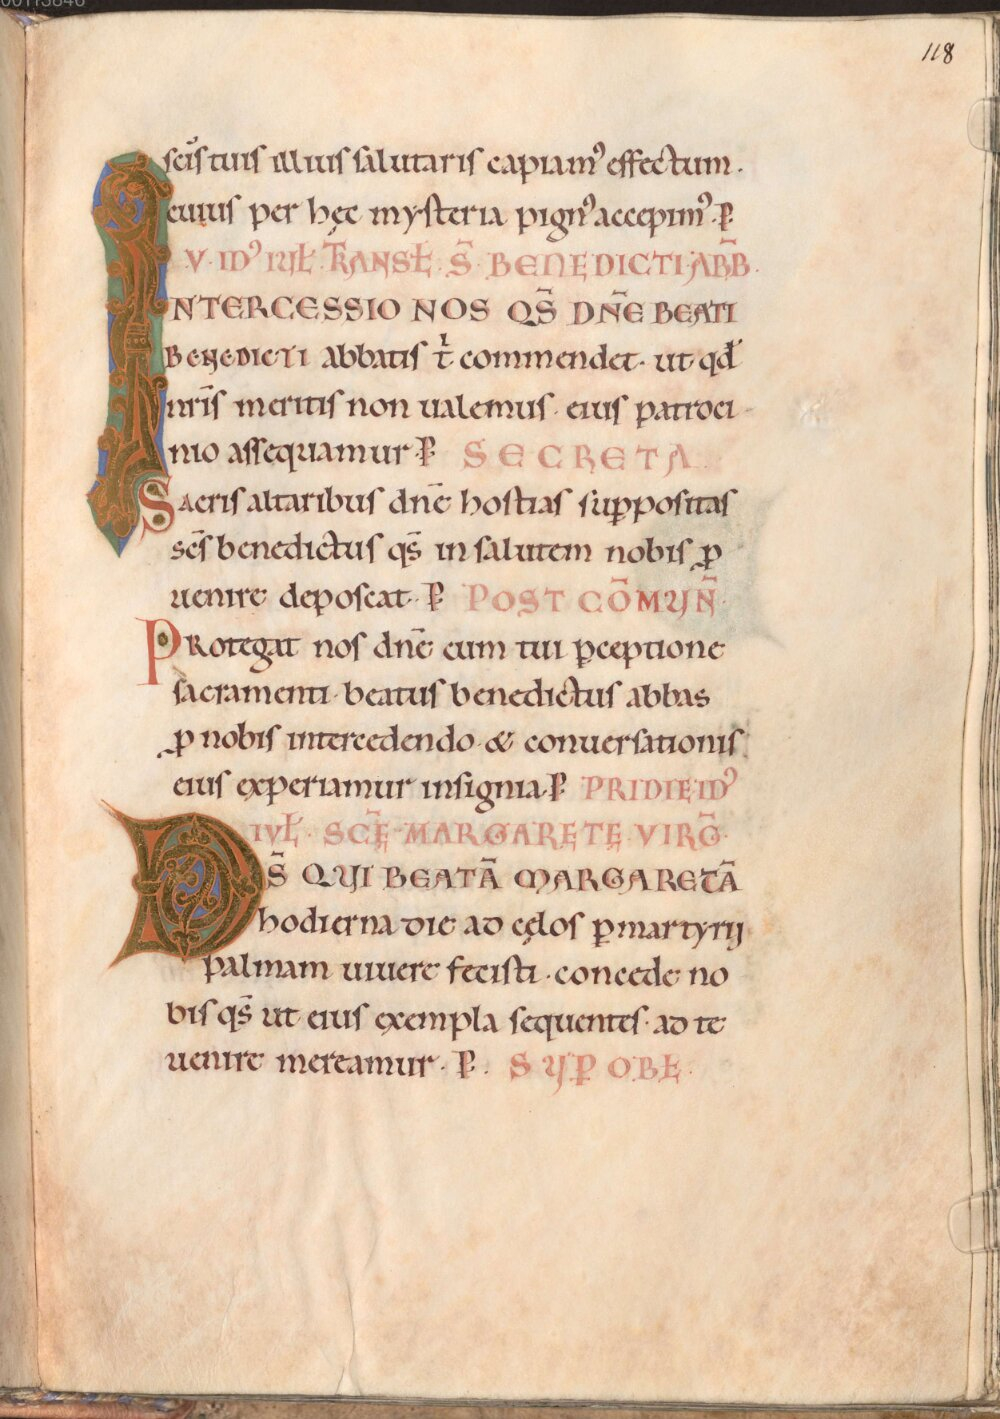 118
sc̄is tuis illius salutaris capiamꝰ effectum.
cuius per hęc mysteria pignꝰ accepimꝰ. P̄
V. IDꝰ IUŁ. TRANSŁ. S̄. BENEDICTI ABB̄.
INTERCESSIO NOS QS̄ DN̄E BEATI
BENEDICTI abbatis t̄ commendet. ut qđ
nr̄is meritis non ualemus. eius patroci-
nio assequamur. P̄ SECRETA.
Sacris altaribus dn̄e hostias suppositas
sc̄s benedictus qs̄ in salutem nobis ꝓ
uenire deposcat. P̄ POST CŌMUN̄.
Protegat nos dn̄e cum tui ꝑceptione
sacramenti. beatus benedictus abbas
ꝓ nobis intercedendo. & conuersationis
eius experiamur insignia. P̄ PRIDIE IDꝰ
IUŁ. SC̄Ę MARGARETĘ VIRḠ.
DS̄ QUI BEATĀ MARGARETĀ
hodierna die ad cęlos ꝑ martyrij
palmam uiuere fecisti. concede no
bis qs̄ ut eius exempla sequentes. ad te
uenire mereamur. P̄. SUꝐ OBĘ.